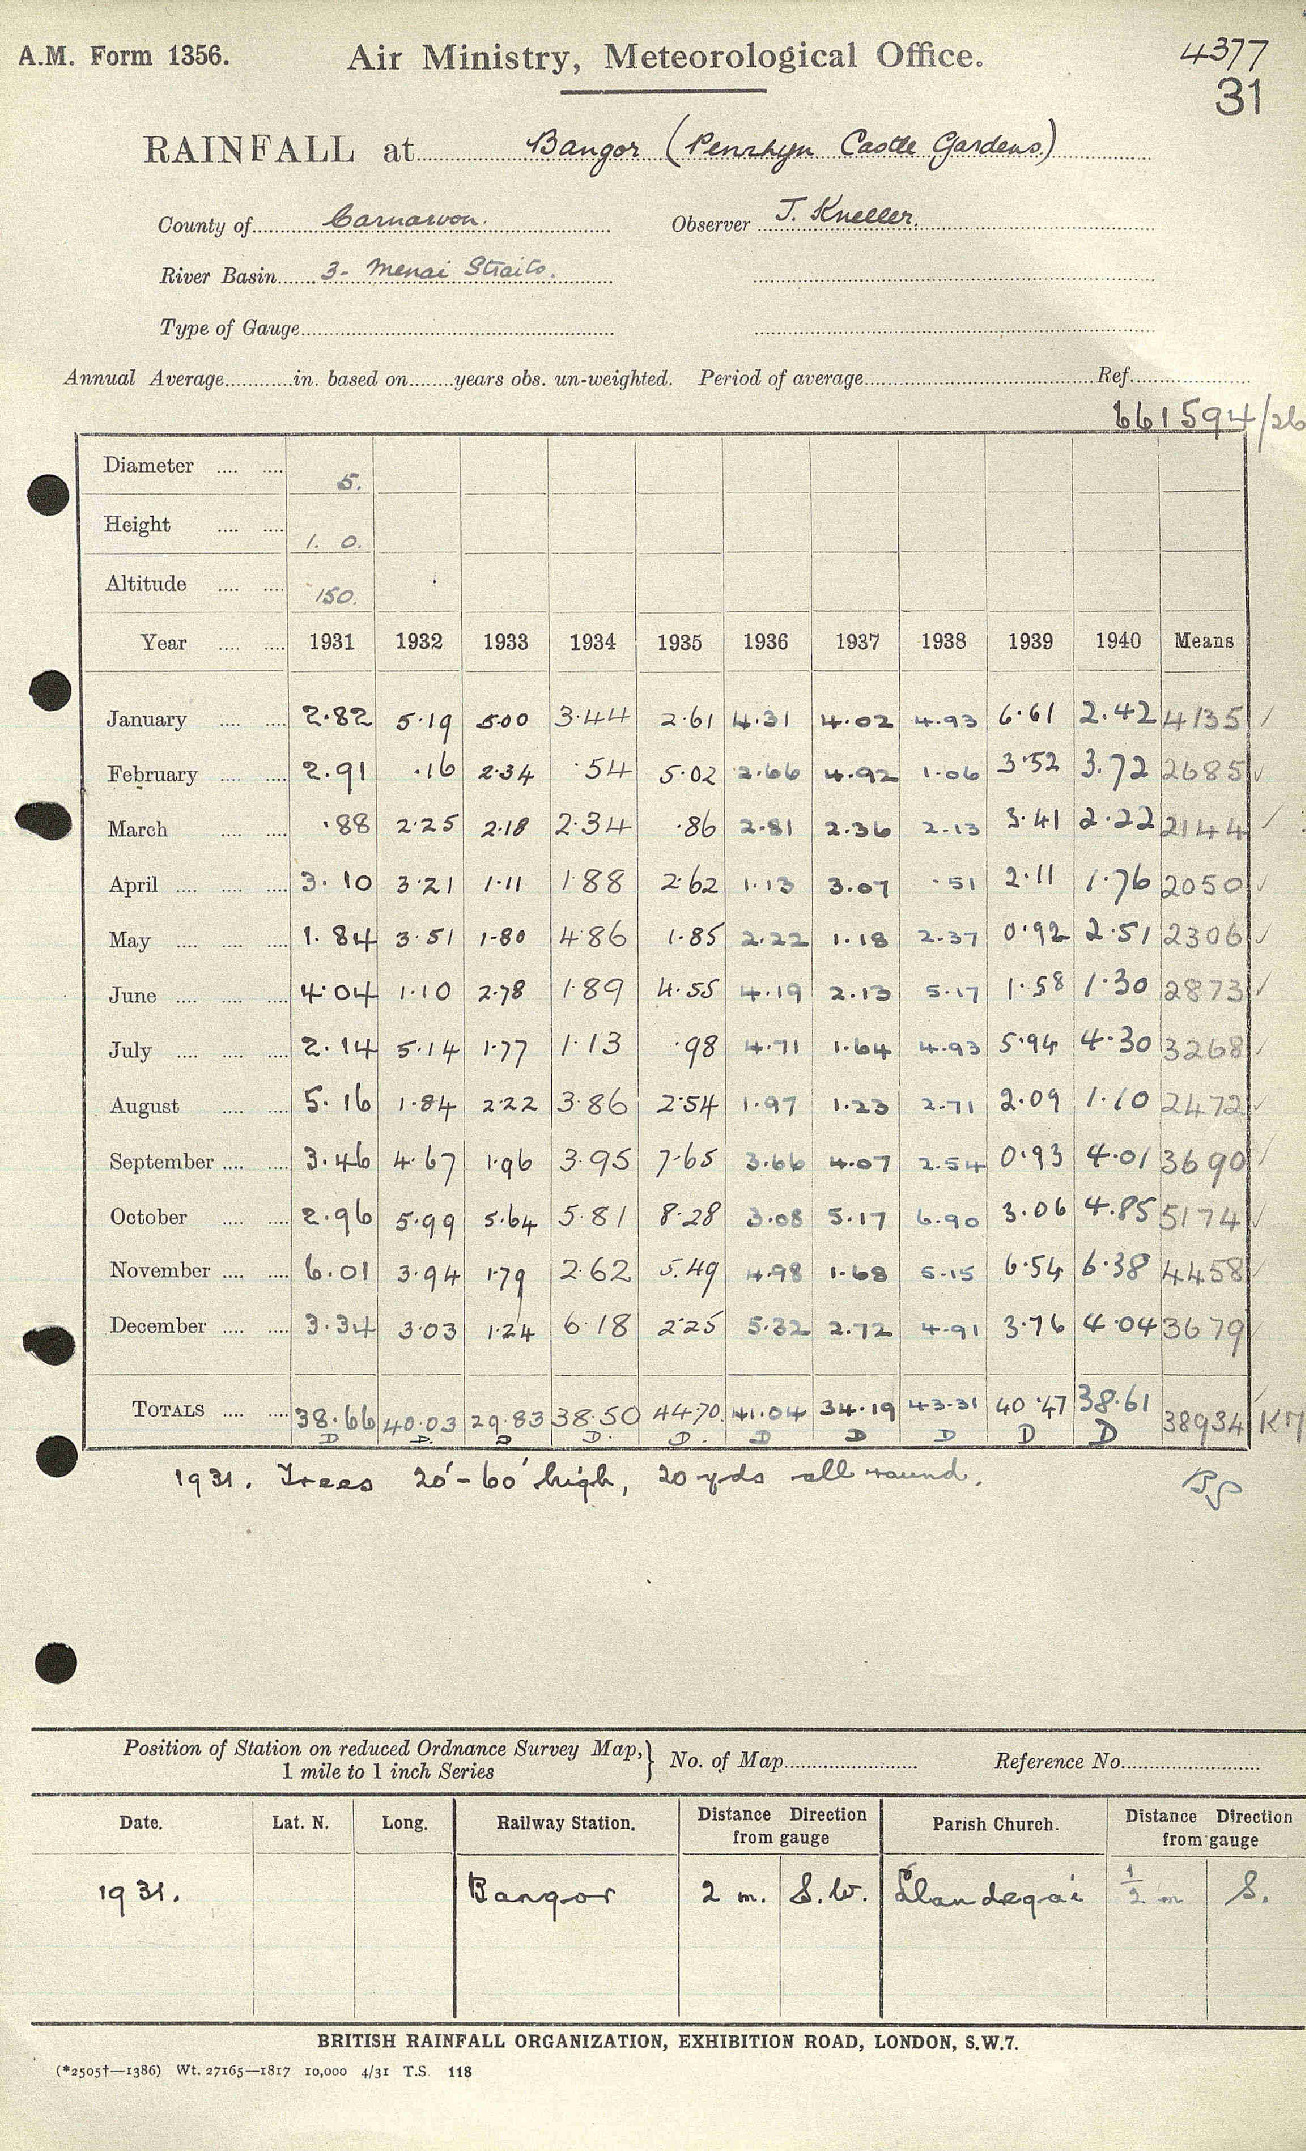 A.M. Form 1356. Air Ministry, Meteorological Office. 4377
31
RAINFALL at Bangor (Penrhyn Castle Gardens)
County of Carnarvon. Observer J. Kneller.
River Basin 3- Menai Straits.
Type of Gauge
Annual Average in. based on years obs. un-weighted. Period of average Ref.
661594/26
Diameter 5.
Height 1. 0.
Altitude 150.
Year 1931 1932 1933 1934 1935 1936 1937 1938 1939 1940 Means
January 2.82 5.19 5.00 3.44 2.61 4.31 4.02 4.93 6.61 2.42 4135 ✓
February 2.91 .16 2.34 .54 5.02 2.66 4.92 1.06 3.52 3.72 2685 ✓
March .88 2.25 2.18 2.34 .86 2.81 2.36 2.13 3.41 2.22 2144 ✓
April 3.10 3.21 1.11 1.88 2.62 1.13 3.07 .51 2.11 1.76 2050 ✓
May 1.84 3.51 1.80 4.86 1.85 2.22 1.18 2.37 0.92 2.51 2306 ✓
June 4.04 1.10 2.78 1.89 4.55 4.19 2.13 5.17 1.58 1.30 2873 ✓
July 2.14 5.14 1.77 1.13 .98 4.71 1.64 4.93 5.94 4.30 3268 ✓
August 5.16 1.84 2.22 3.86 2.54 1.97 1.23 2.71 2.09 1.10 2472 ✓
September 3.46 4.67 1.96 3.95 7.65 3.66 4.07 2.54 0.93 4.01 3690 ✓
October 2.96 5.99 5.64 5.81 8.28 3.08 5.17 6.90 3.06 4.85 5174 ✓
November 6.01 3.94 1.79 2.62 5.49 4.98 1.68 5.15 6.54 6.38 4458 ✓
December 3.34 3.03 1.24 6.18 2.25 5.32 2.72 4.91 3.76 4.04 3679 ✓
TOTALS 38.66 40.03 29.83 38.50 44.70 41.04 34.19 43.31 40.47 38.61 38934
D D D D D D D D D D
1931. Trees 20'-60' high, 20 yds all round.
Position of Station on reduced Ordnance Survey Map,} No. of Map Reference No.
1 mile to 1 inch Series
Date. Lat. N. Long. Railway Station. Distance Direction from gauge Parish Church. Distance Direction from gauge
1931. Bangor 2 m. S.W. Llandegai 1/2 m S.
BRITISH RAINFALL ORGANIZATION, EXHIBITION ROAD, LONDON, S.W.7.
(*2505†—1386) Wt. 27165—1817 10,000 4/31 T.S. 118